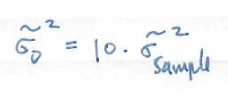 σ̃₀² = 10 · σ̃²sample